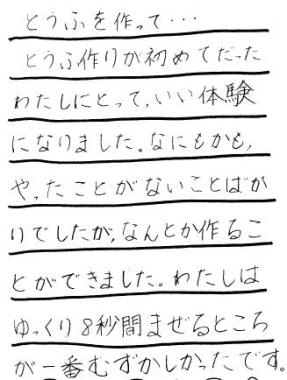 とうふを作って・・・
とうふ作りが初めてだった
わたしにとって,いい体験
になりました。なにもかも,
や,たことがないことばか
りでしたが,なんとか作るこ
とができました。わたしは
ゆっくり8秒間まぜるところ
が一番むずかしかったです。